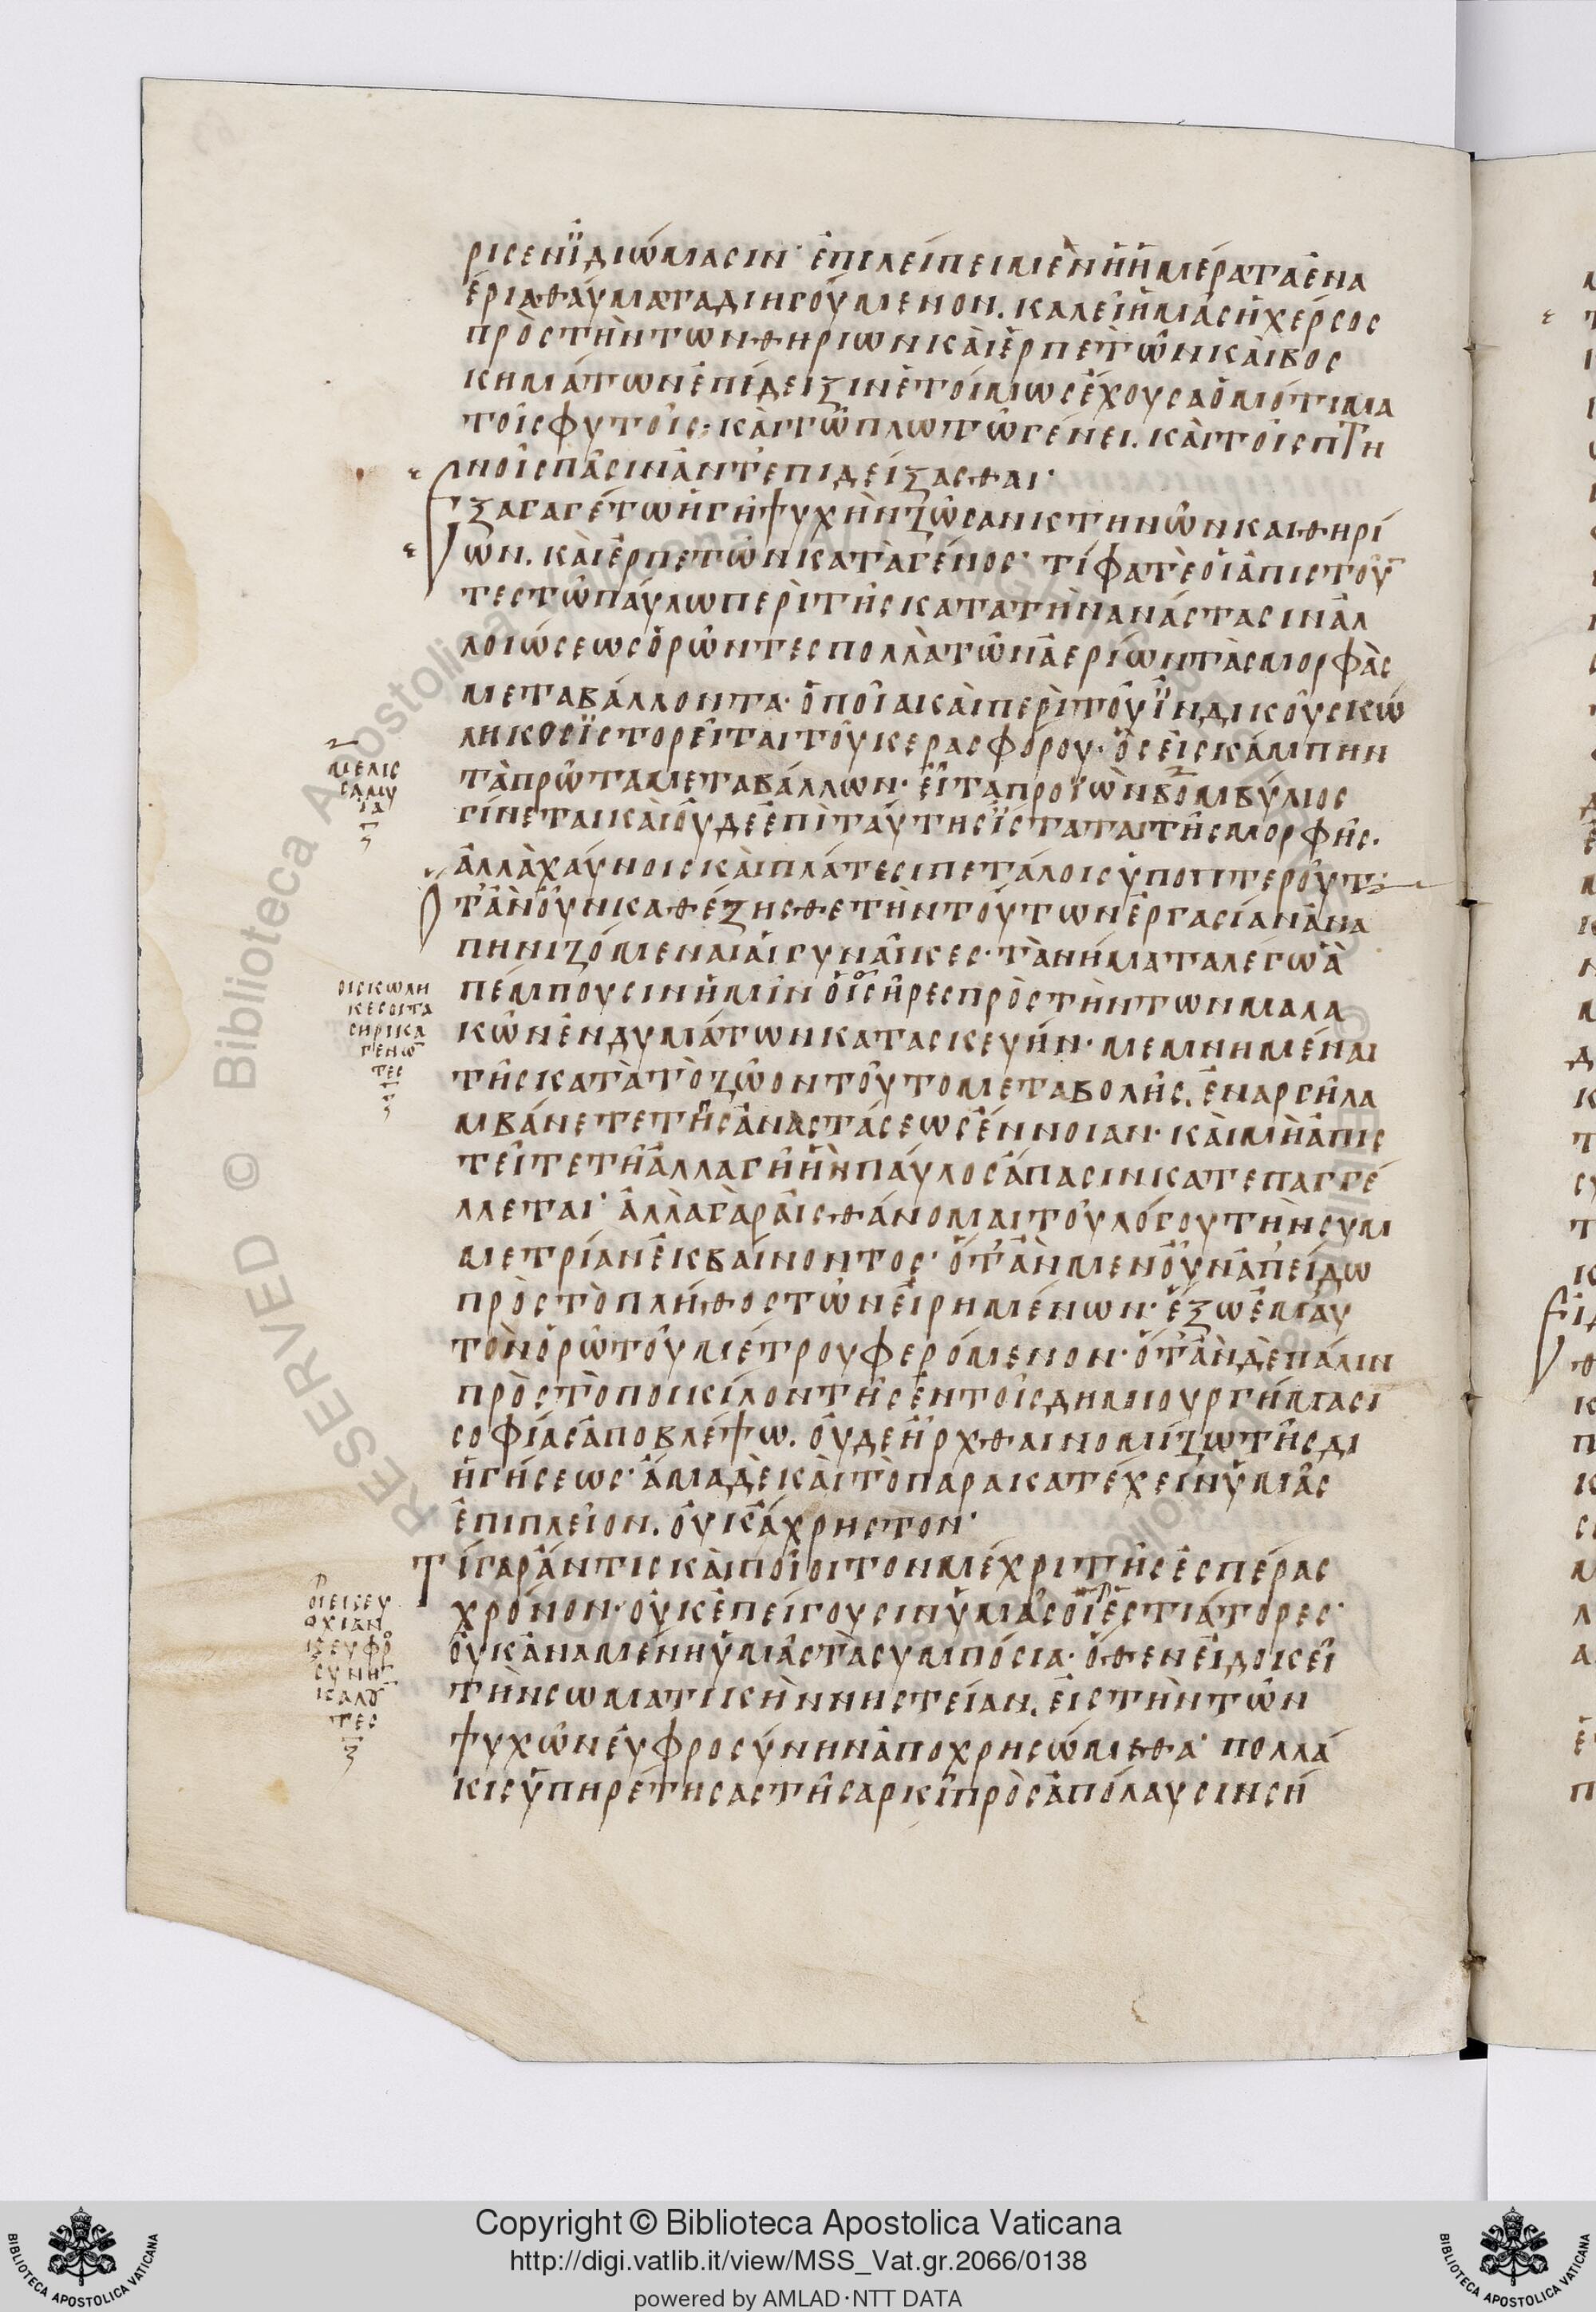 ρισεν ϊδιώμασιν· ἐπιλείπει μὲν ἡ ἡμέρα τὰ ἐνα
έρια θαύματα διηγούμενον. καλεῖ ἡμᾶς ἡ χέρσος
πρὸς τὴν τῶν θηρίων καὶ ἑρπετῶν καὶ βος
κημάτων ἐπίδειξιν ἑτοίμως ἔχουσα ὁμότιμα
τοῖς φυτοῖς· κἀι τῶ πλωτῶ γένει. κἀι τοῖς πτη
νοῖς πᾶσιν ἀντεπιδείξασθαι·
Εξαγαγέτω ἡ γῆ ψυχὴν ζῶσαν κτηνῶν καὶ θηρί
ων. κὰι ἑρπετῶν κατὰ γένος· τί φατὲ οἱ ἀπιστοῦ
τες τῶ παύλω περὶ τῆς κατὰ τὴν ἀνάστασιν ἀλ
λοιώσεως ὁρῶντες πολλὰ τῶν ἀερίων τὰς μορφὰς
μεταβάλλοντα· ὁποῖα κὰι περὶ τοῦ ϊνδικοῦ σκώ
ληκος ϊστορεῖται τοῦ κερασφόρου· ὃς εἰς κάμπην
τὰ πρῶτα μεταβάλλων· εἶτα προϊὼν βομβύλιος
γίνεται κὰι οὐδε ἐπὶ ταύτης ϊσταται τῆς μορφῆς.
ἀλλὰ χαύνοις κὰι πλάτεσι πετάλοις ὑποπτεροῦτ
Οτἂν οὖν καθέζησθε τὴν τούτων ἐργασίαν ἀνα
πηνιζόμεναι αἱ γυναῖκες· τὰ νήματα λέγω ἃ
πέμπουσιν ἡμῖν οἱ σῆρες πρὸς τὴν τῶν μαλα
κῶν ἐνδυμάτων κατασκευήν· μεμνημέναι
τῆς κατὰ τὸ ζῶον τοῦτο μεταβολῆς. ἐναργῆ λα
μβάνετε τῆς ἀναστάσεως ἔννοιαν· κὰι μὴ ἀπισ
τεῖτε τῆ ἀλλαγῆ ἣν παύλος ἅπασιν κατεπαγγέ
λλεται· ἀλλὰ γὰρ αἰσθάνομαι τοῦ λόγου τὴν συμ
μετρίαν ἐκβαίνοντος· ὅτἂν μεν οὖν ἀπείδω
πρὸς τὸ πλήθος τῶν εἰρημένων· ἔξω ἐμαυ
τὸν ὁρῶ τοῦ μέτρου φερόμενον· ὅτἂν δὲ πάλιν
πρὸς τὸ ποικίλον τῆς ἐν τοῖς δημιουργήμασι
σοφίας ἀποβλέψω. οὐδε ἦρχθαι νομίζω τῆς δι
ηγήσεως· ἅμα δὲ κὰι τὸ παρακατέχειν ὑμᾶς
ἐπιπλεῖον. οὐκ ἄχρηστον·
Τί γαρ ἄν τις κὰι ποιοῖ τον μέχρι τῆς ἑσπέρας
χρόνον· οὐκ ἐπείγουσιν ὑμας οἱ ἑστιάτορες·
οὐκ ἀναμένη ὑμᾶς τὰ συμπόσια· ὅθεν εἰ δοκεῖ
τὴν σωματικὴν νηστείαν. εἰς τὴν τῶν
ψυχῶν εὐφροσύνην ἀποχρησώμεθα· πολλά
κις ὑπηρέτησας τῆ σαρκὶ πρὸς ἀπόλαυσιν σή
μελις
σα μυ
ϊα
οι σκωλη
κες οι τα
σηρικα
γενω
τες
οι εις ευ
ωχιαν
Copyright © Biblioteca Apostolica Vaticana
http://digi.vatlib.it/view/MSS_Vat.gr.2066/0138
powered by AMLAD·NTT DATA
BIBLIOTECA APOSTOLICA VATICANA
BIBLIOTECA APOSTOLICA VATICANA